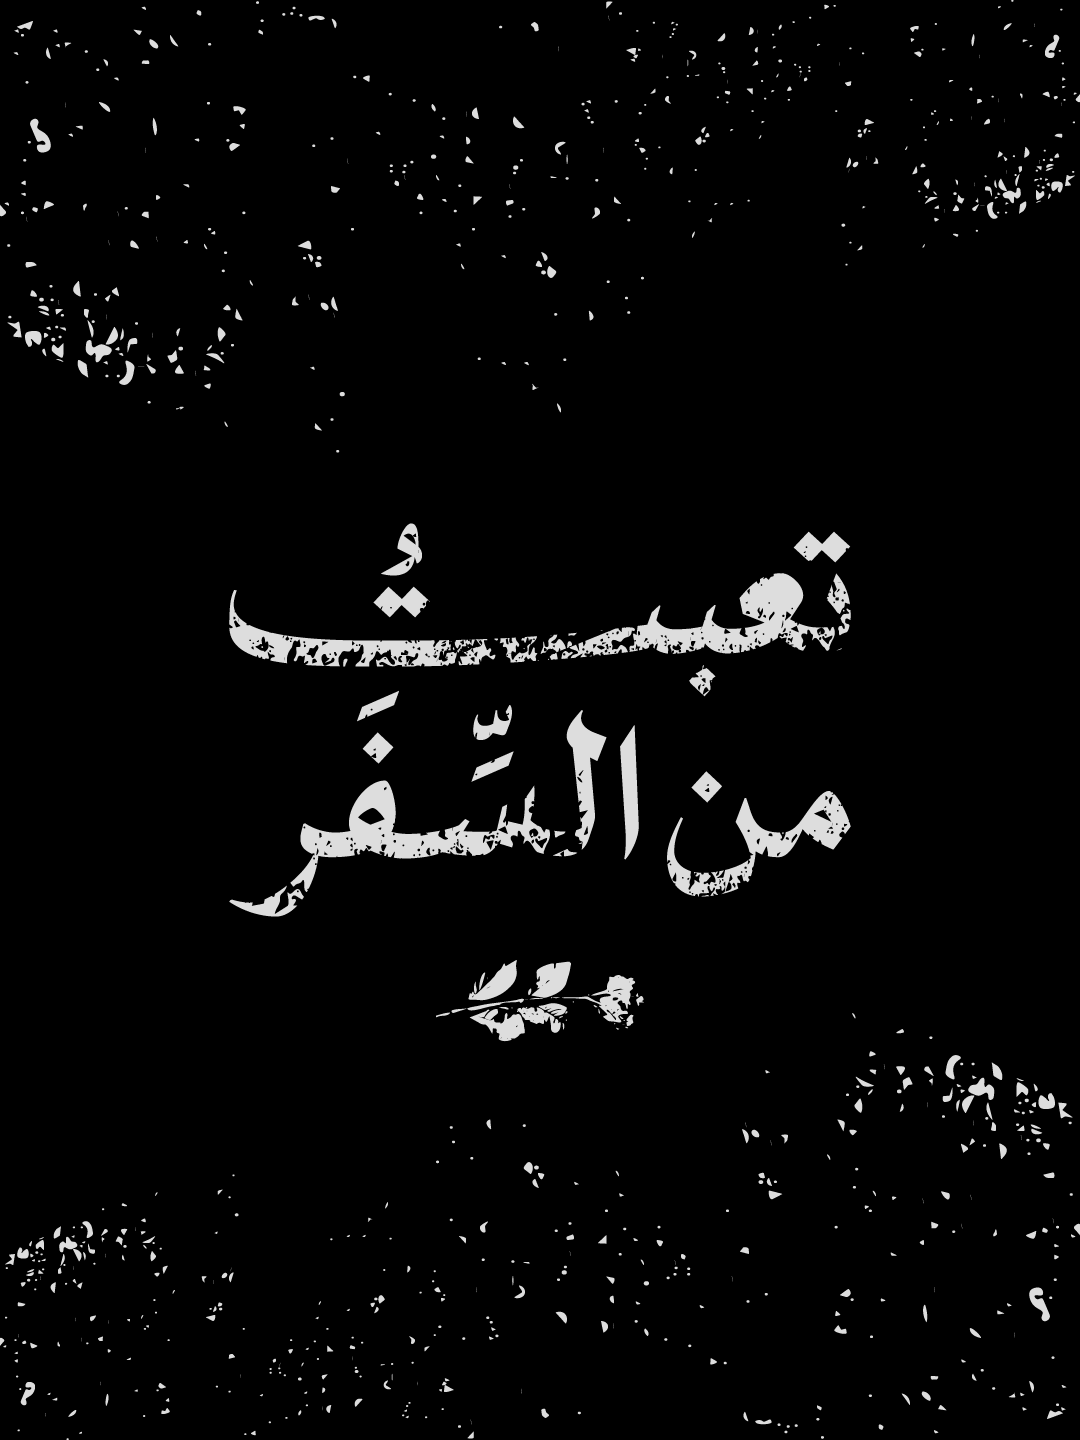 تعبتُ
من السَّفَر